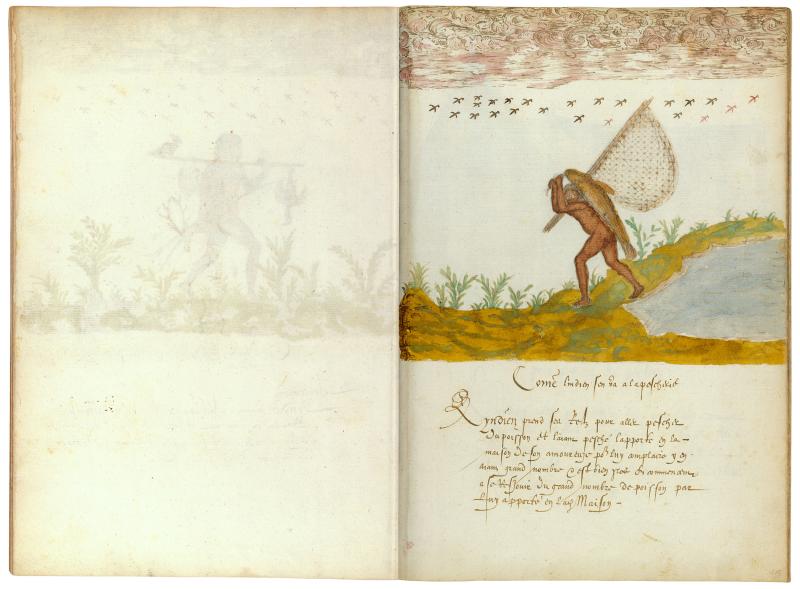 Come lindien sen va a la pescherie
Lyndien prend ses retz pour aller pescher
Du poisson et laiant pesché lapporte en la
maison de son amoureuse po luy complaire
aiant grand nombre Cest bien
a se resiouir du grand nombre de poisson par
luy apporté en Maison